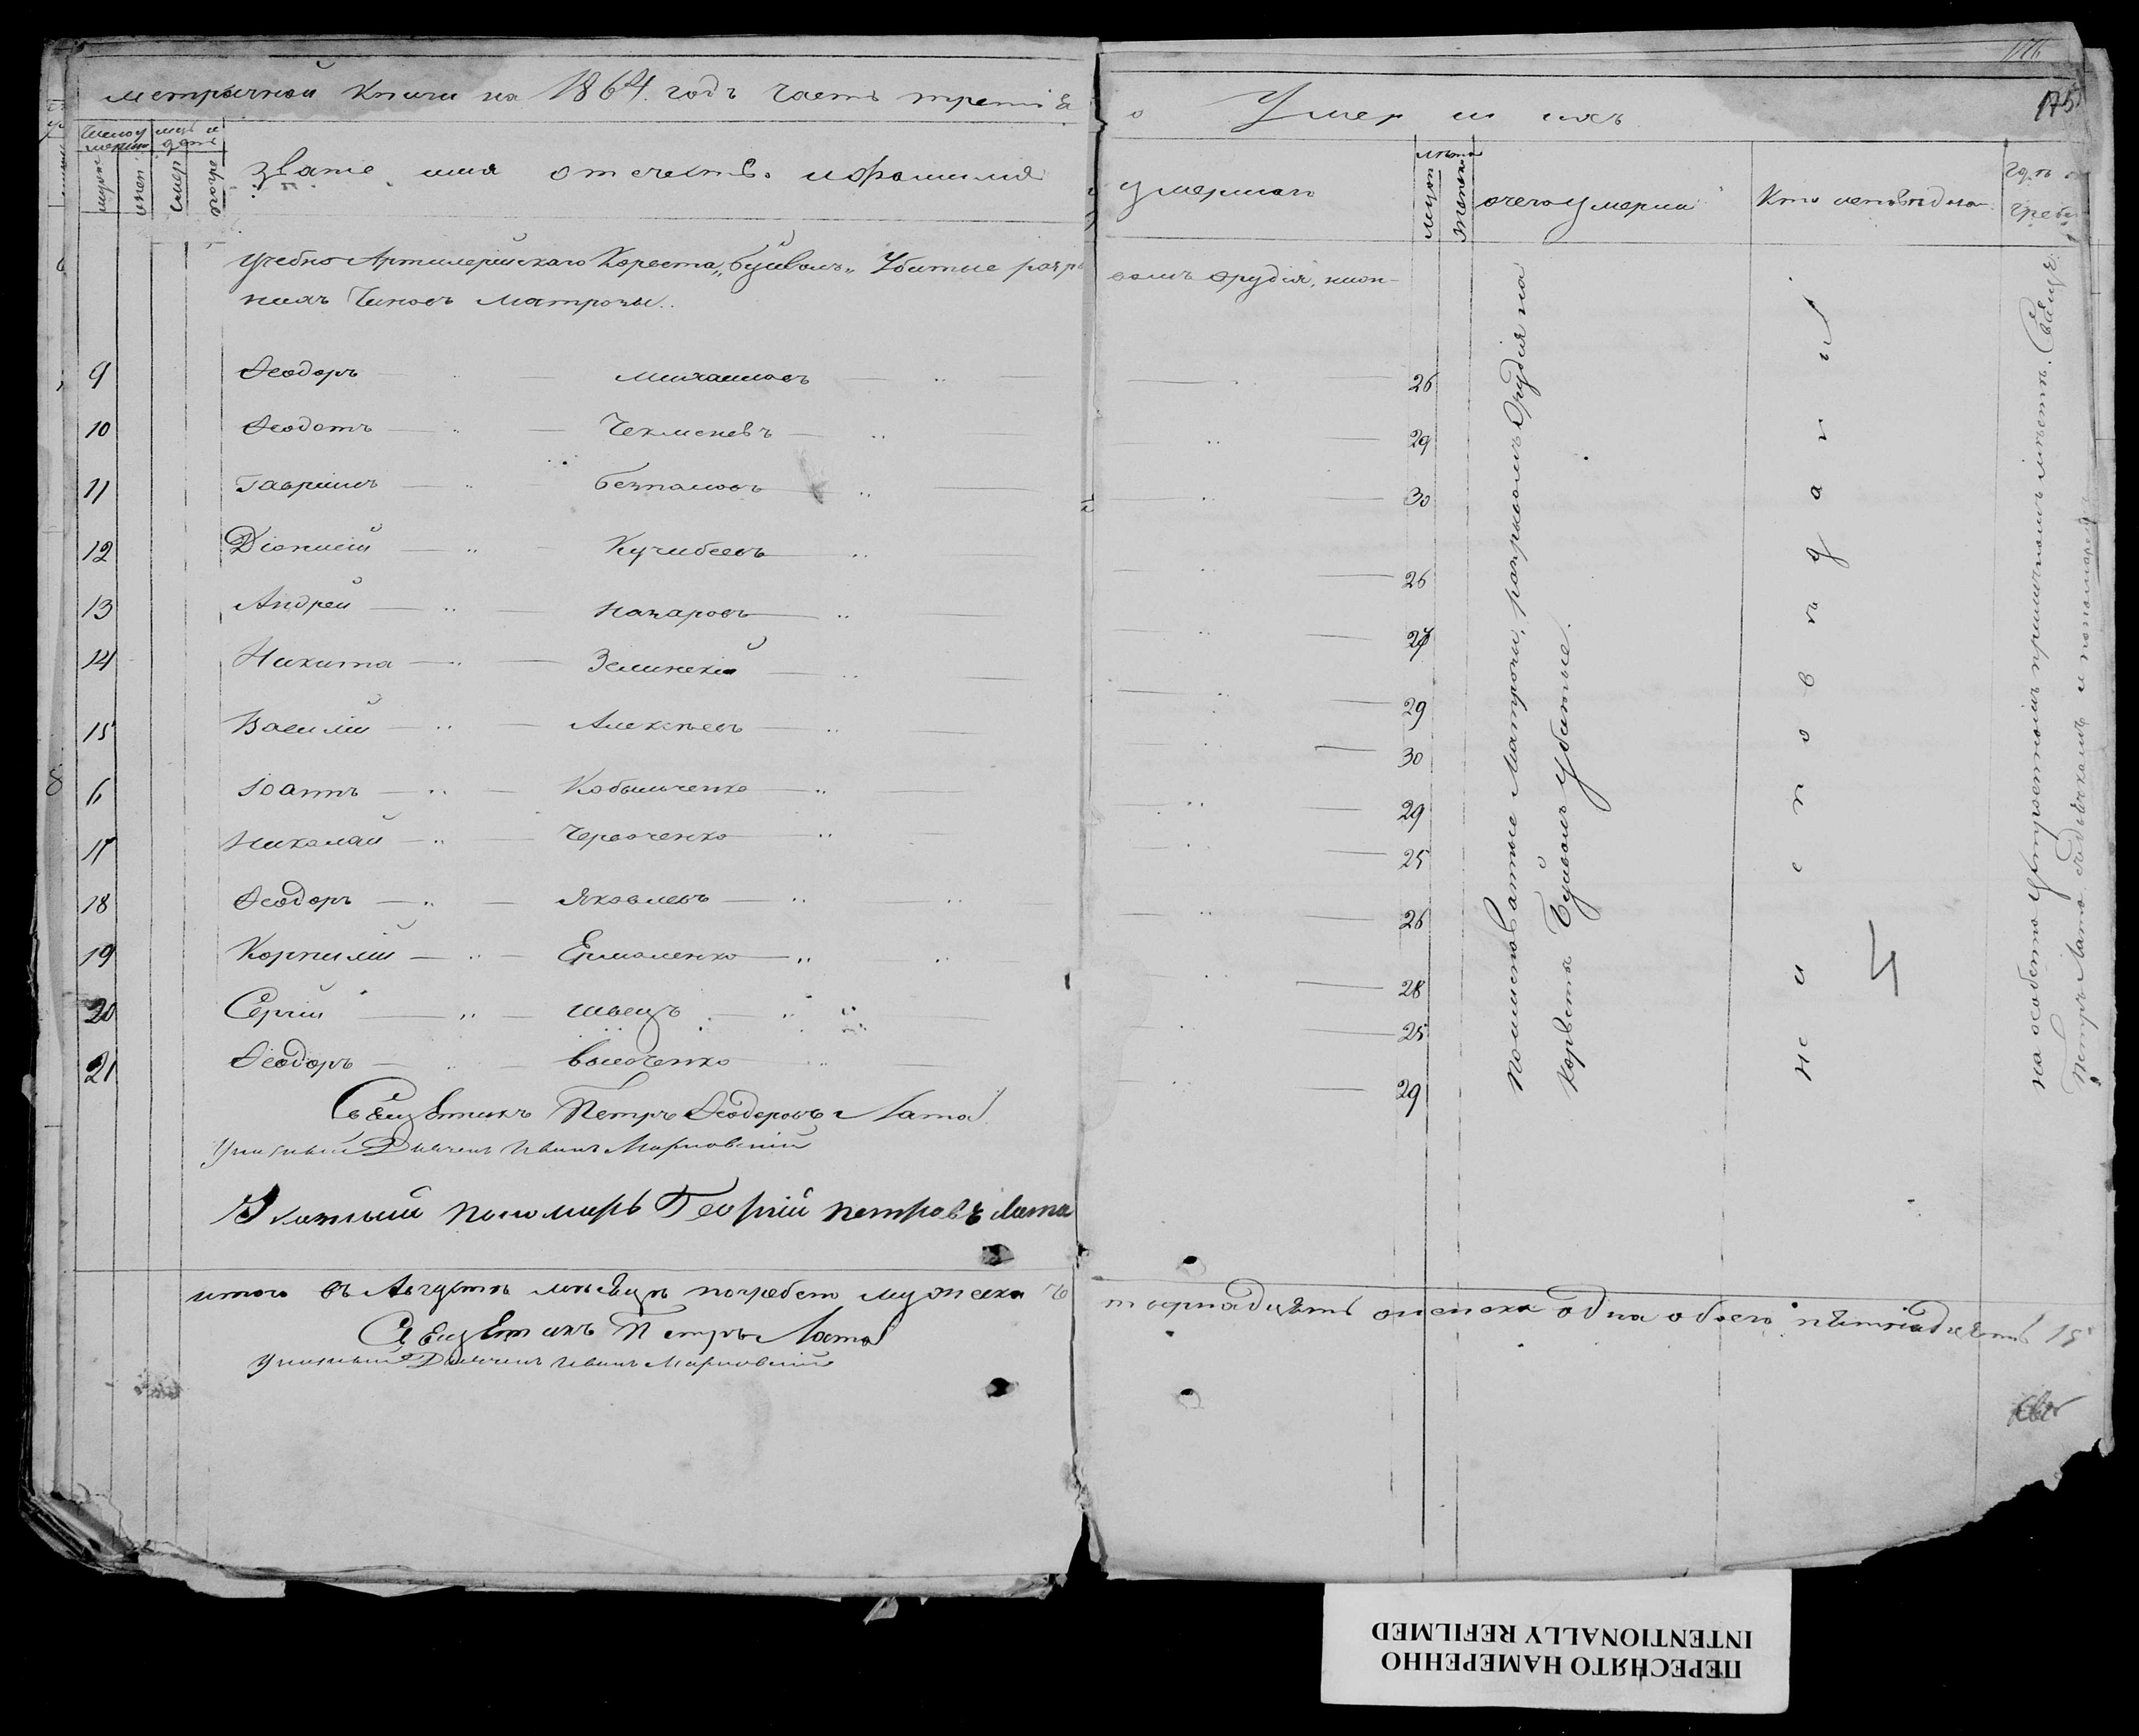 метрычной книги на 1864. годъ часть третiя
о Умершихъ
176
175
число умерш
мцъ и дни
муже
женс
смер
погре
званiе имя отечеств. и фамилiя
умершаго
лѣта
мужеск
женск
отчего умерли
Кто исповѣдова
гдѣ и
погреб
учебно Артилерiйскаго Корвета „Буйволъ„ Убитые разры
вомъ орудiя, ниж-
нихъ Чиновъ матрозы.
9 Ѳеодоръ — " — михаиловъ — " — 26
10 Ѳеодотъ — " — Чекменевъ — " — 29
11 Гаврiилъ — " — Безпаловъ — " — 30
12 Дiонисiй — " — Кучибеевъ — " — 26
13 Андрей — " — Назаровъ — " — 27
14 Никита — " — Зелинскiй — " — 29
15 Василiй — " — Алексѣевъ — " — 30
16 Iоаннъ — " — Кобыличенко — " — 29
17 Николай — " — Червоченко — " — 25
18 Ѳеодоръ — " — Яковлевъ — " — 26
19 Корнилiй — " — Ермоленко — " — 28
20 Сергiй — " — Швецъ — " — 25
21 Ѳеодоръ — " — Высоченко — " — 29
Поименованные Матрозы, разрывомъ Орудiя на
корветѣ Буйволъ убитые.
не исповѣданы
на особено устроенномъ приличномъ мѣстѣ. Свящ.
Петръ Лата съ дьячкомъ и пономаремъ
Священникъ Петръ Ѳеодоровъ Лата
Указный Дьячекъ Иванъ Марновскiй
Указный пономарь Георгiй петровъ Лата
итого въ Августѣ мѣсяцѣ погребено мужеска че
тырнадцять женска одна обоего пятнадцять 15
Священникъ Петръ Лата
Указный Дьячекъ Иванъ Марновскiй
ПЕРЕСНЯТО НАМЕРЕННО
INTENTIONALLY REFILMED